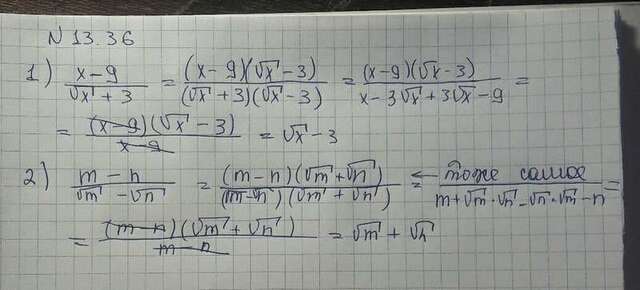 N 13.36
1) \frac{x-9}{\sqrt{x}+3} = \frac{(x-9)(\sqrt{x}-3)}{(\sqrt{x}+3)(\sqrt{x}-3)} = \frac{(x-9)(\sqrt{x}-3)}{x-3\sqrt{x}+3\sqrt{x}-9} =
= \frac{(x-9)(\sqrt{x}-3)}{x-9} = \sqrt{x}-3
2) \frac{m-n}{\sqrt{m}-\sqrt{n}} = \frac{(m-n)(\sqrt{m}+\sqrt{n})}{(\sqrt{m}-\sqrt{n})(\sqrt{m}+\sqrt{n})} = \frac{← тоже самое}{m+\sqrt{m}·\sqrt{n}-\sqrt{n}·\sqrt{m}-n} =
= \frac{(m-n)(\sqrt{m}+\sqrt{n})}{m-n} = \sqrt{m}+\sqrt{n}